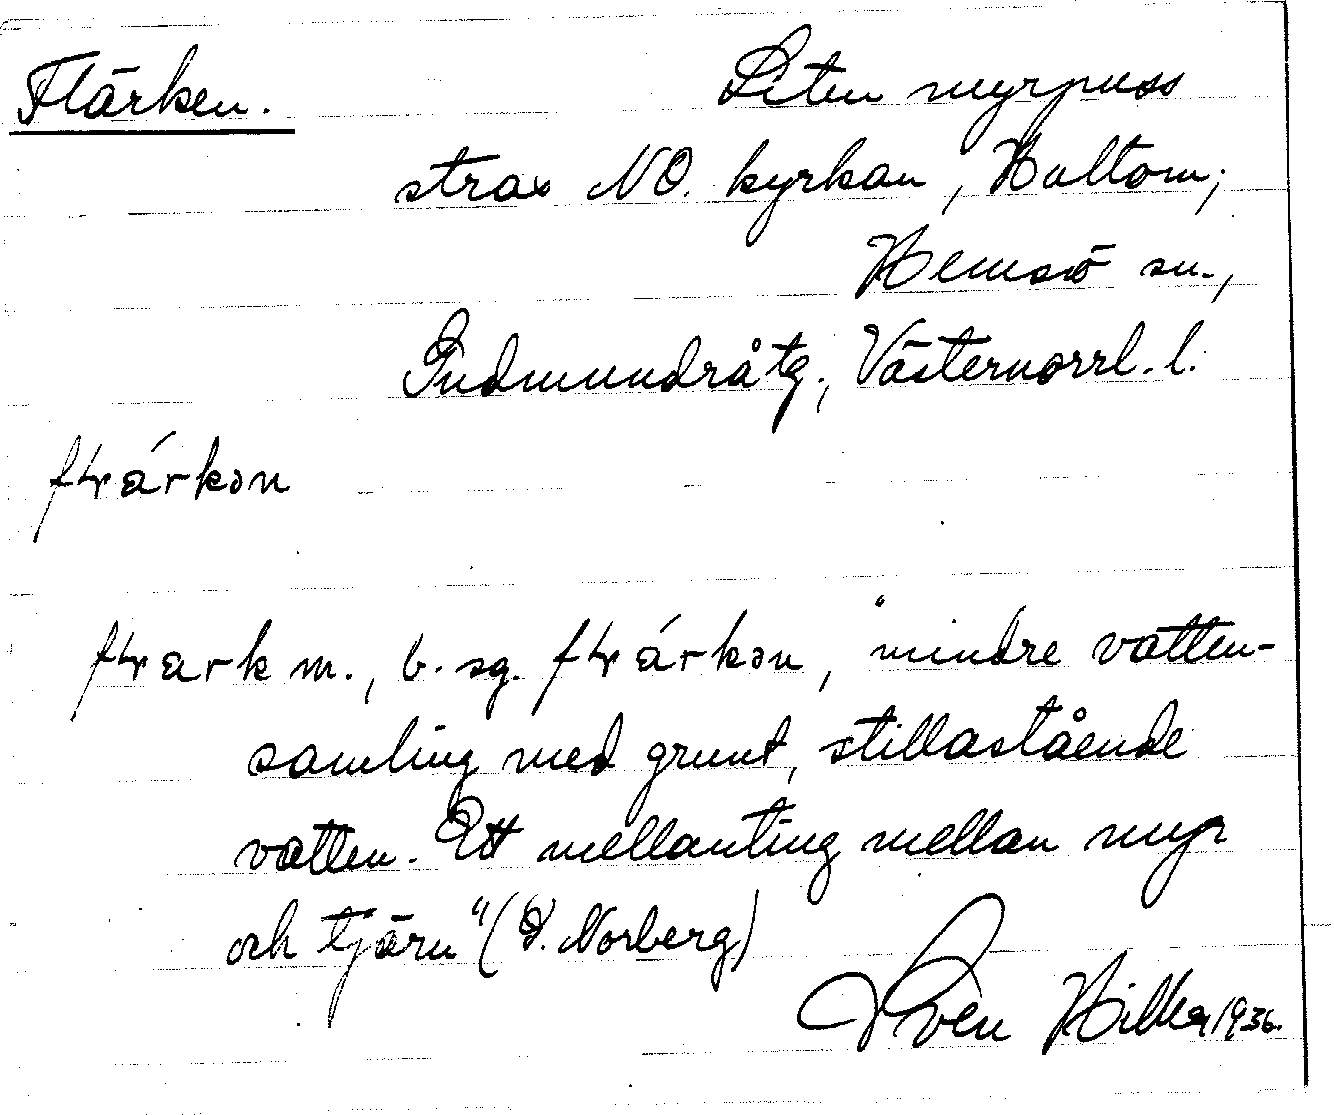 Flärken.
Liten myrpuss
strax NO. kyrkan, Hultom;
Hemsö sn.,
Gudmundrå tg., Västernorrl. l.
flárkən
flark m., b. sg. flárkən, "mindre vatten-
samling med grunt, stillastående
vatten. Ett mellanting mellan myr
och tjärn" (D. Norberg)
Sven Hillka 1936.